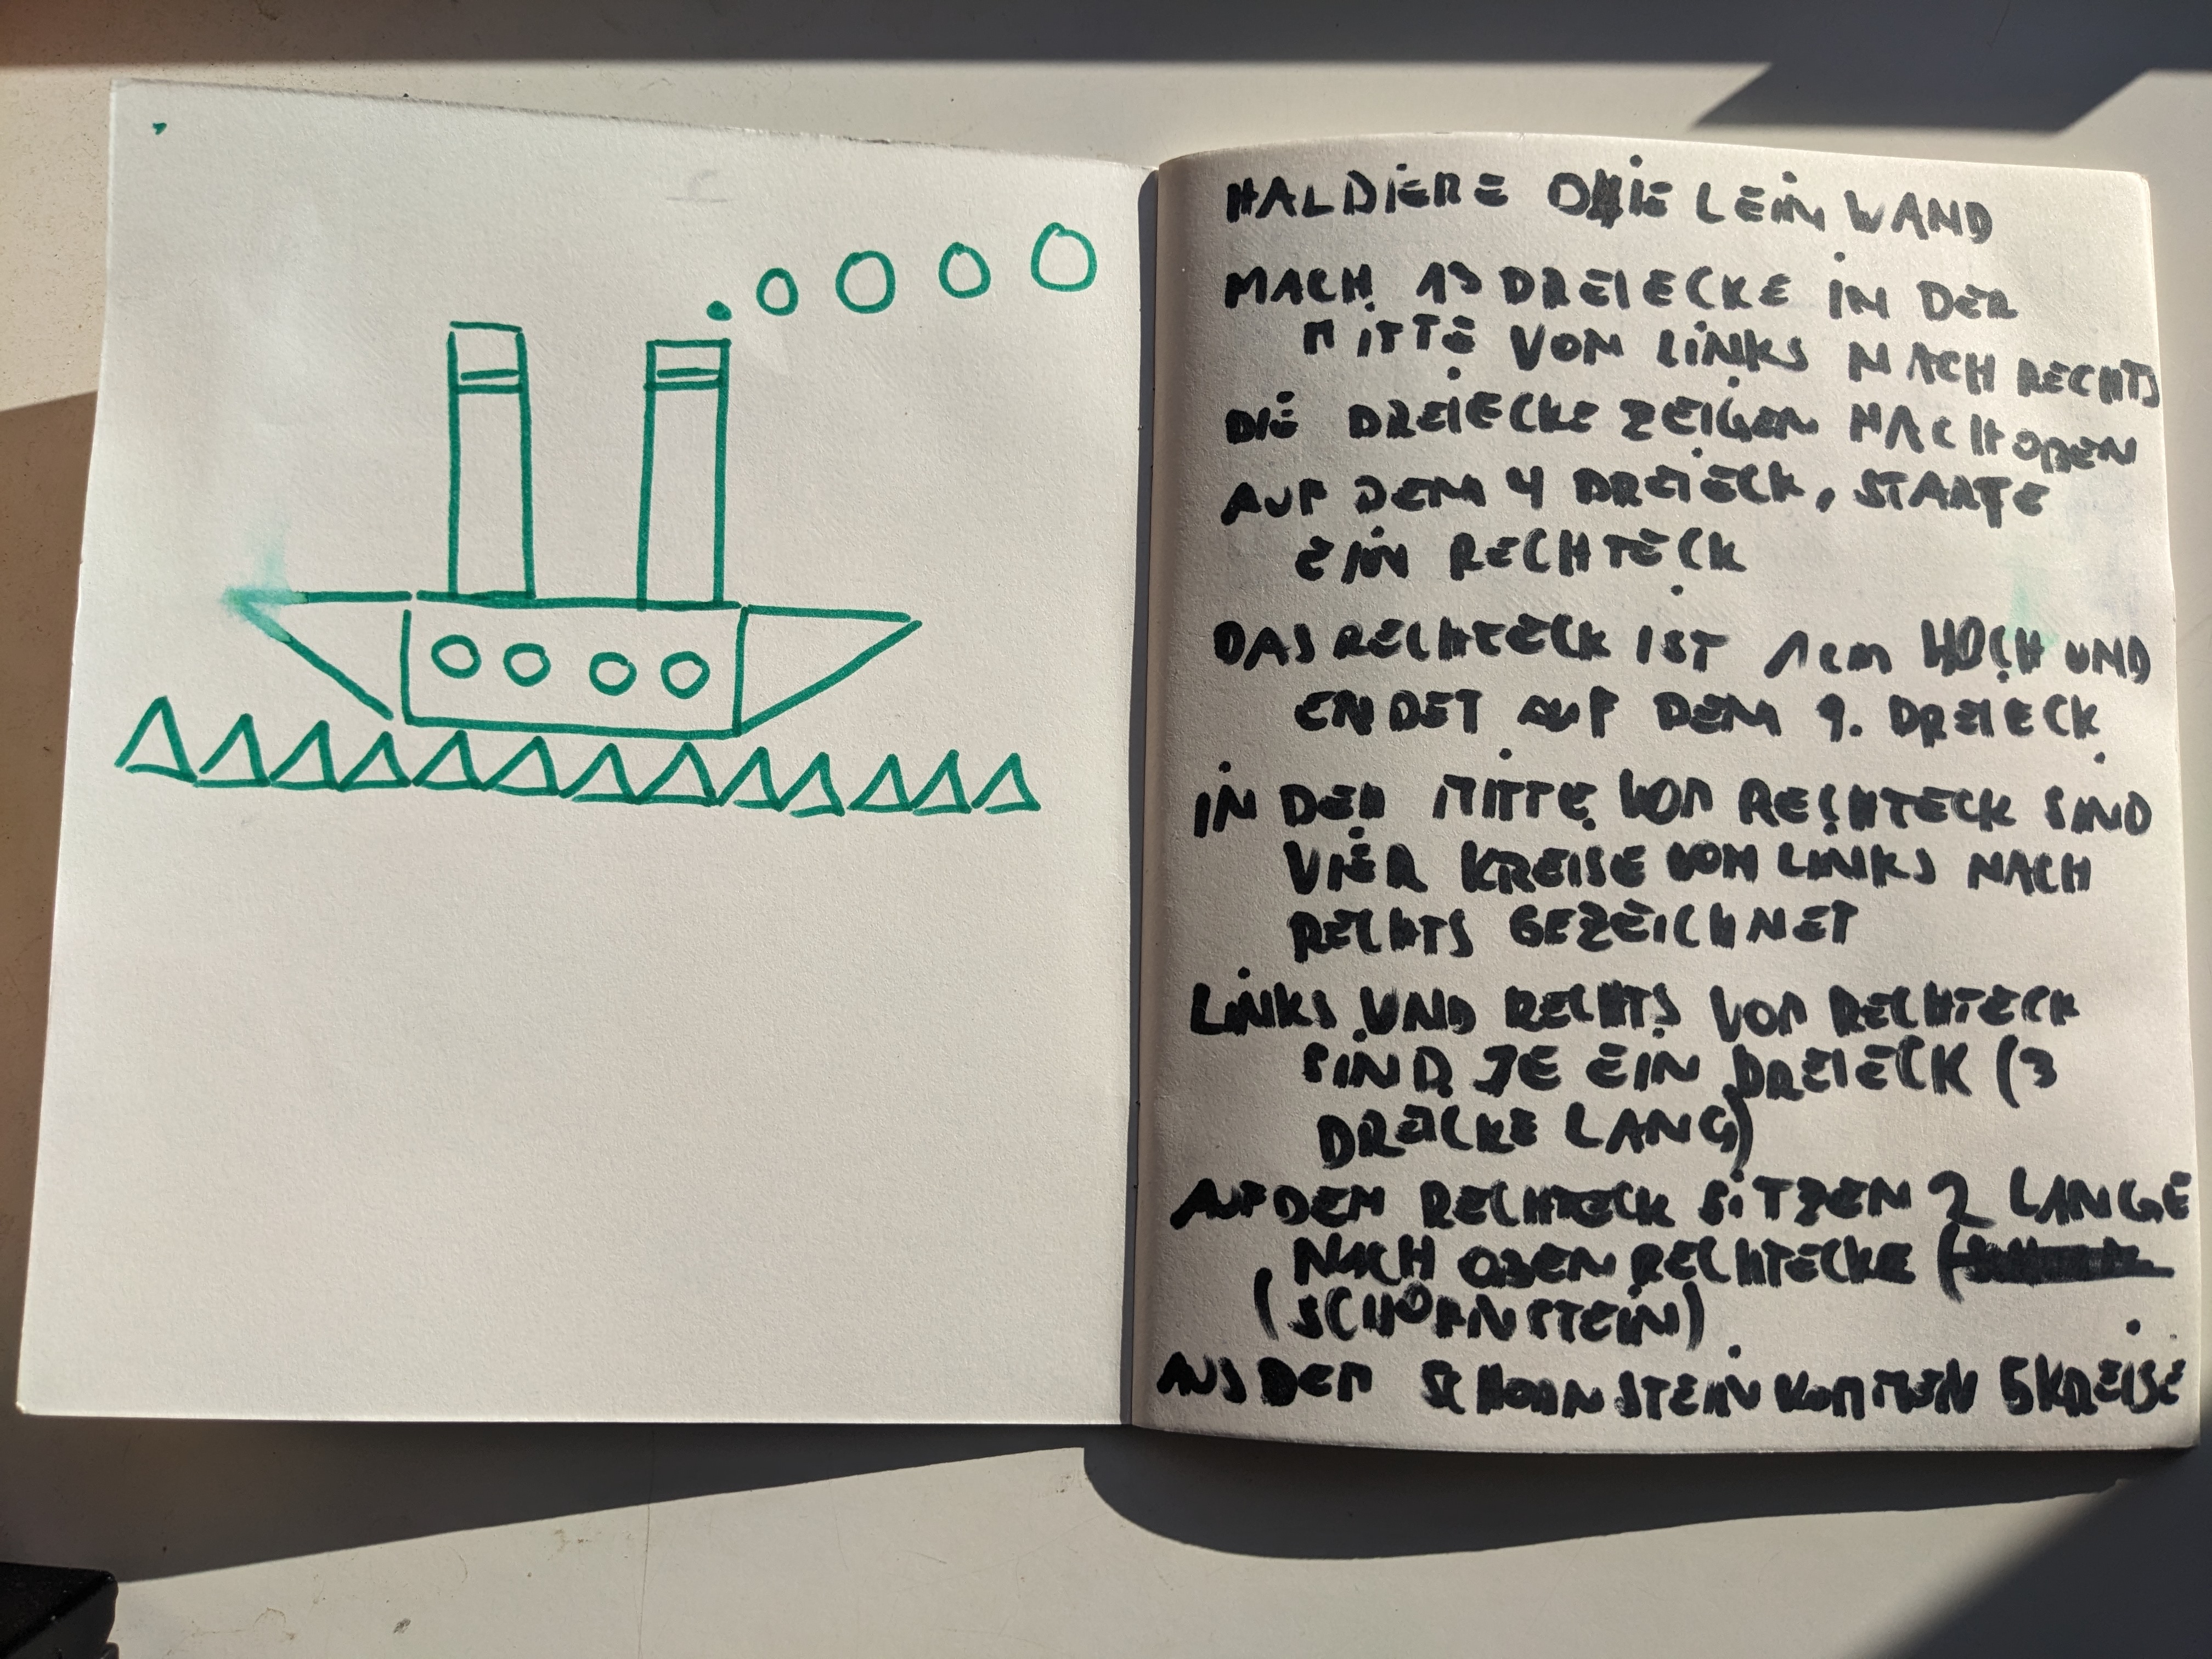 HALDIERE DIE LEINWAND
MACH 13 DREIECKE IN DER
MITTE VON LINKS NACH RECHTS
DIE DREIECKE ZEIGEN NACH OBEN
AUF DEM 4 DREIECK, STARTE
EIN RECHTECK
DAS RECHTECK IST 1cm HOCH UND
ENDET AUF DEM 9. DREIECK
IN DER MITTE VOM RECHTECK SIND
VIER KREISE VON LINKS NACH
RECHTS GEZEICHNET
LINKS UND RECHTS VOM RECHTECK
SIND JE EIN DREIECK (3
DREICKE LANG)
AUF DEM RECHTECK SITZEN 2 LANGE
NACH OBEN RECHTECKE (
(SCHORNSTEIN)
AUS DEM SCHORNSTEIN KOMMEN 5 KREISE